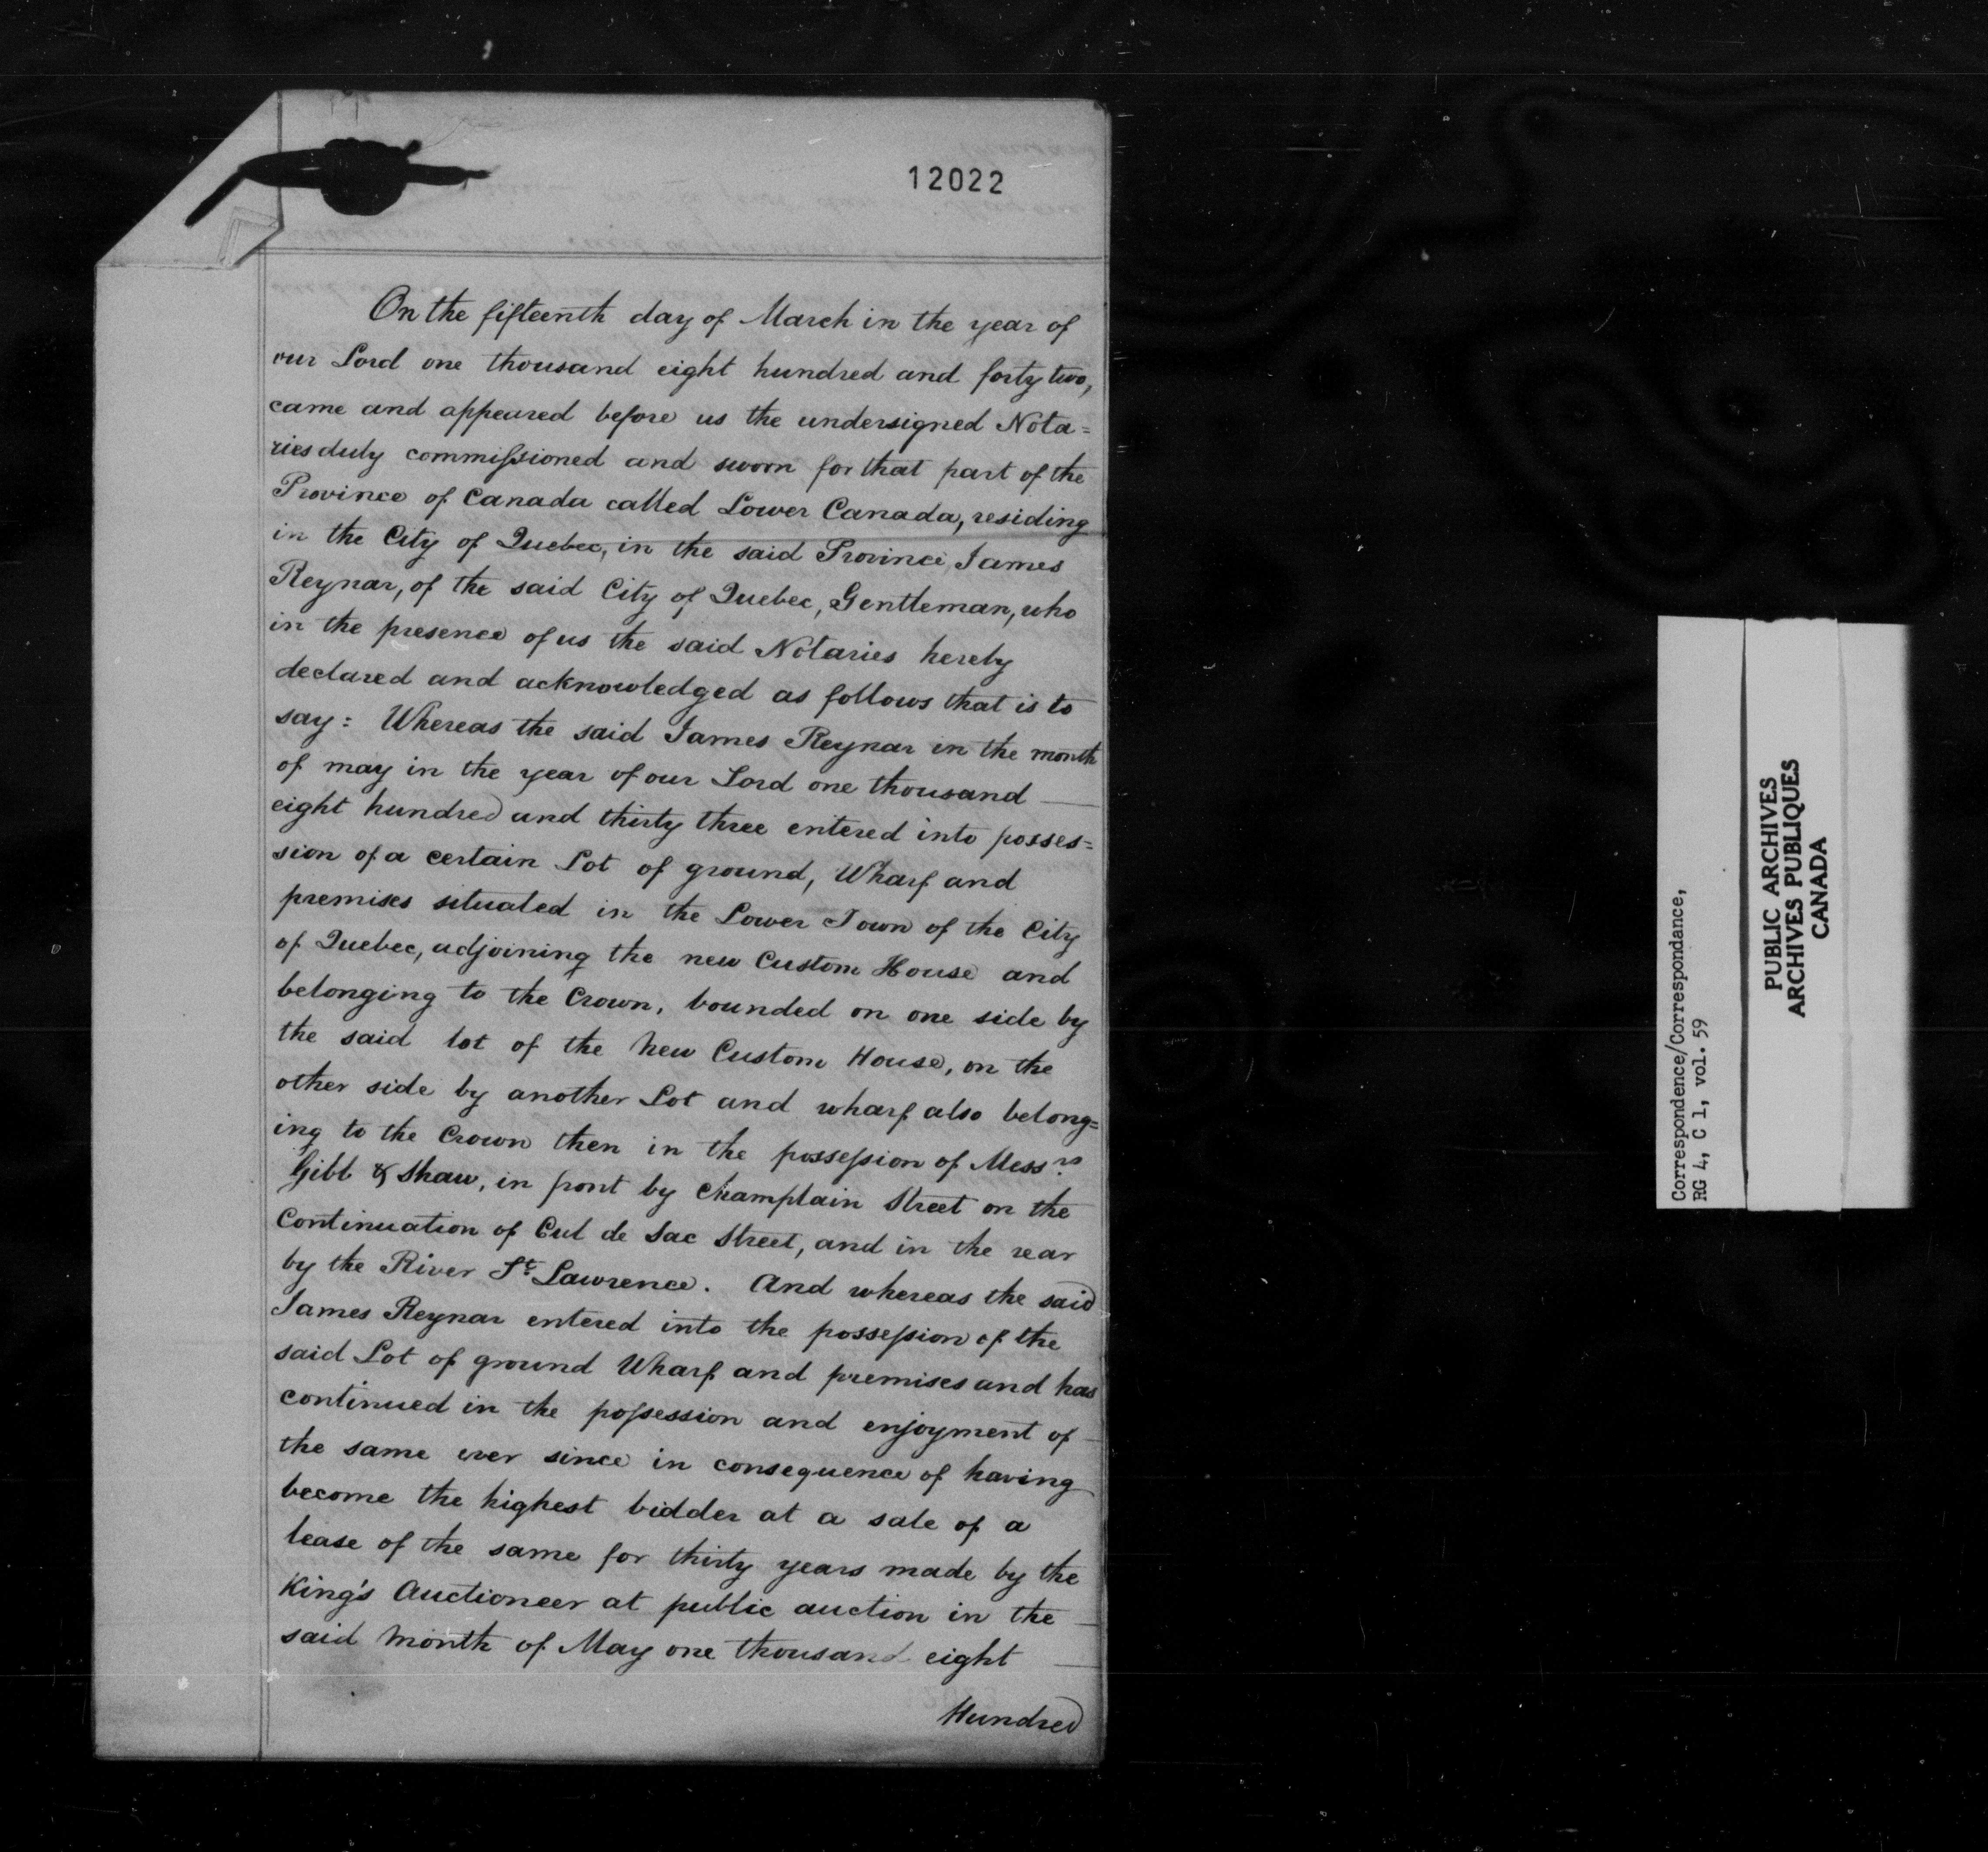 12022
On the fifteenth day of March in the year of
our Lord one thousand eight hundred and forty two,
came and appeared before us the undersigned Nota=
ries duly commissioned and sworn for that part of the
Province of Canada called Lower Canada, residing
in the City of Quebec, in the said Province, James
Reynar, of the said City of Quebec, Gentleman, who
in the presence of us the said Notaries hereby
declared and acknowledged as follows that is to
say: Whereas the said James Reynar in the month
of may in the year of our Lord one thousand —
eight hundred and thirty three entered into posses=
sion of a certain Lot of ground, Wharf and
premises situated in the Lower Town of the City
of Quebec, adjoining the new Custom House and
belonging to the Crown, bounded on one side by
the said lot of the New Custom House, on the
other side by another Lot and wharf also belong=
ing to the Crown then in the possession of Messrs.
Gibb & Shaw, in front by Champlain Street on the
Continuation of Cul de Sac Street, and in the rear
by the River St. Lawrence. And whereas the said
James Reynar entered into the possession of the
said Lot of ground Wharf and premises and has
continued in the possession and enjoyment of —
the same ever since in consequence of having
become the highest bidder at a sale of a
lease of the same for thirty years made by the
King's Auctioneer at public auction in the —
said Month of May one thousand eight —
Hundred
Correspondence/Correspondance,
RG 4, C 1, vol. 59
PUBLIC ARCHIVES
ARCHIVES PUBLIQUES
CANADA